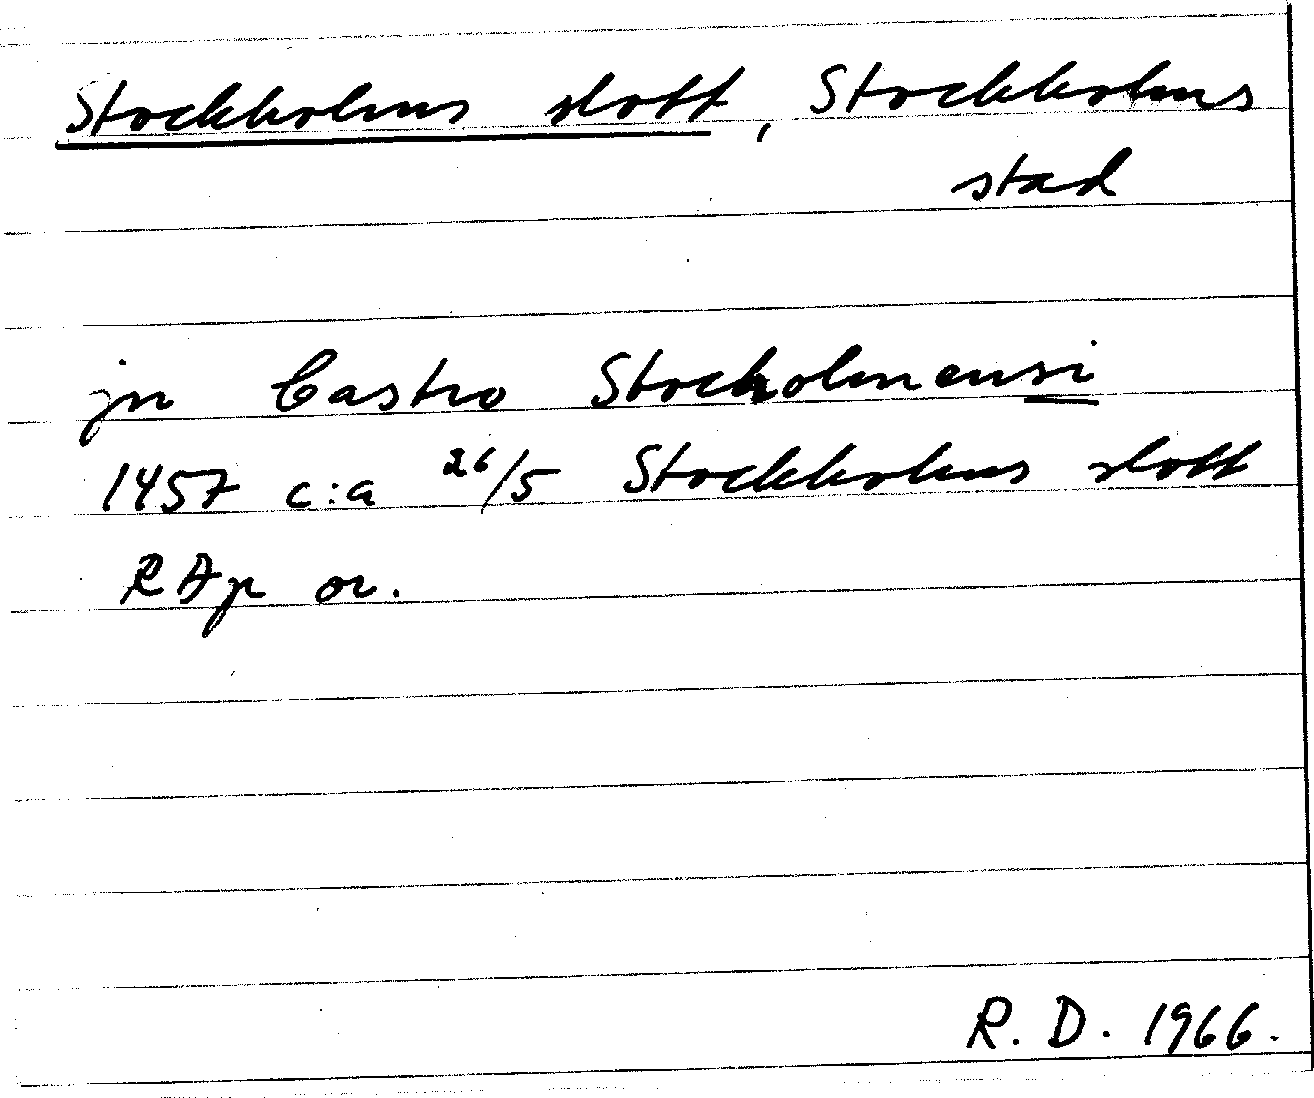 Stockholms slott, Stockholms
stad
jn Castro Stocholmensi
1457 c:a 26/5 Stockholms slott
RAp or.
R. D. 1966.